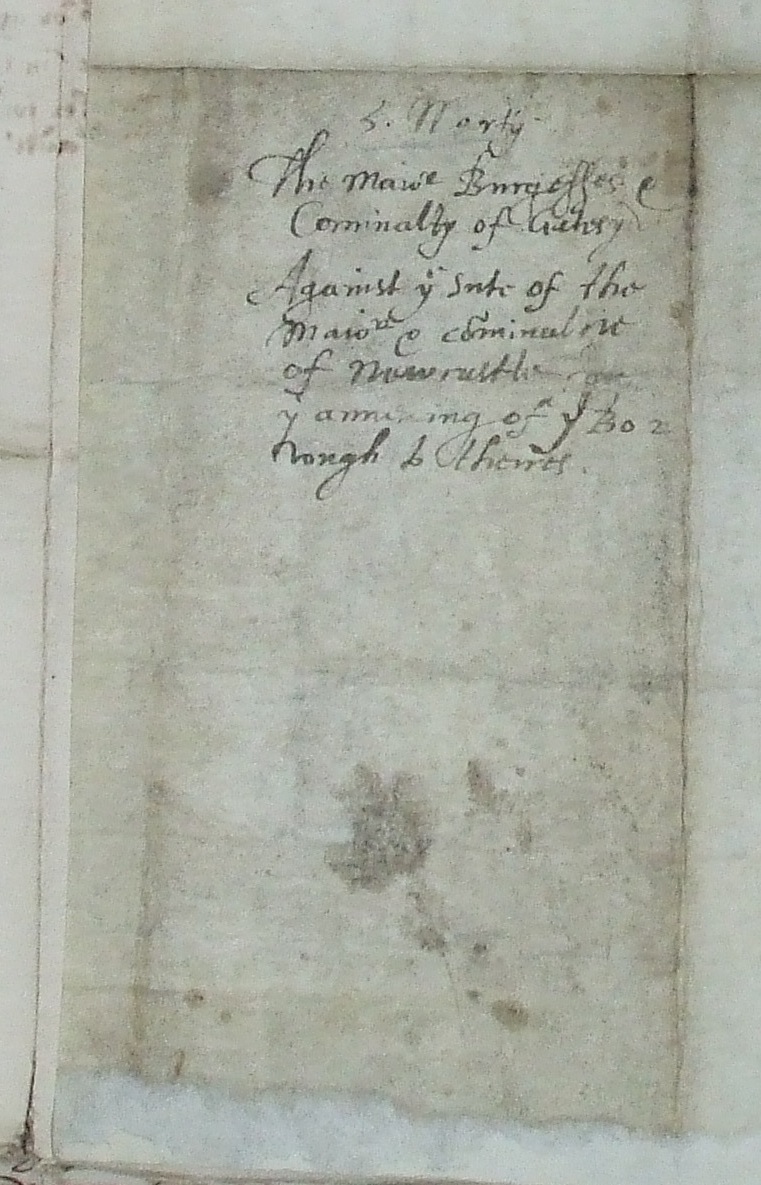 5. Marty
The Maiore Burgesses &
Cominalty of
Against ye Sute of the
Maiore & cominaltie
of Newcastle for
ye annexing of ye Bo
rough to theires.